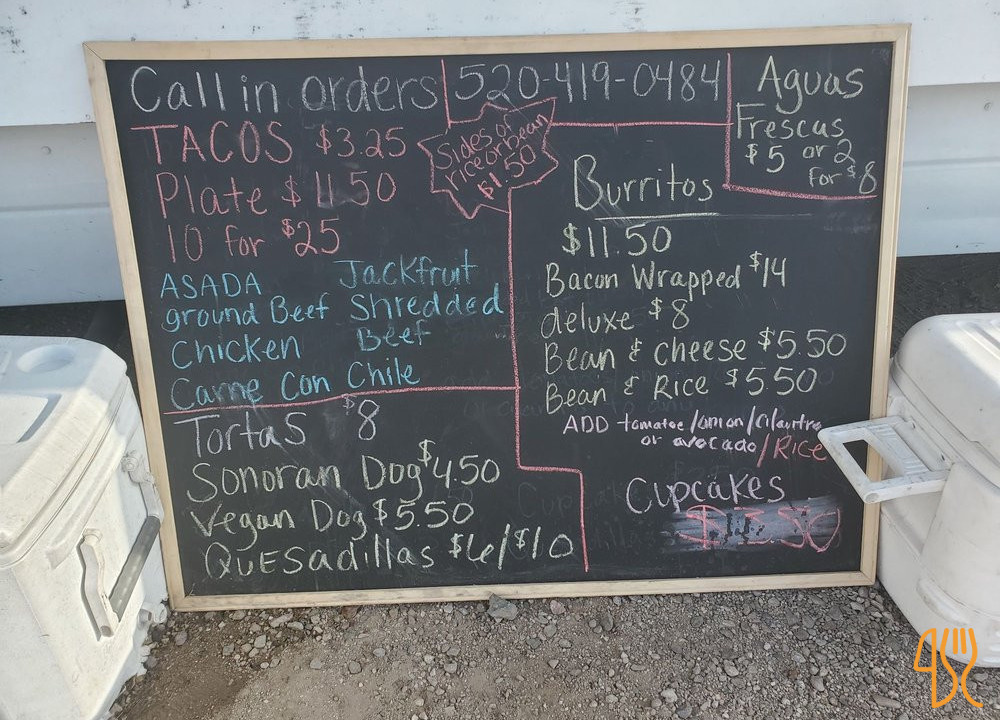 Call in orders 520-419-0484
TACOS $3.25
Plate $
10 for $25
ASADA Jackfruit
ground Beef Shredded
Chicken Beef
Carne Con Chile
Sides of
rice or bean
$1.50
Aguas
Frescas
$5 or 2
for $8
Burritos
$11.50
Bacon Wrapped $14
deluxe $8
Bean & cheese $5.50
Bean & Rice $5.50
ADD tomatoe/onion/cilantro
or avocado/Rice
Tortas $8
Sonoran Dog $4.50
Vegan Dog $5.50
Quesadillas $6/$10
Cupcakes